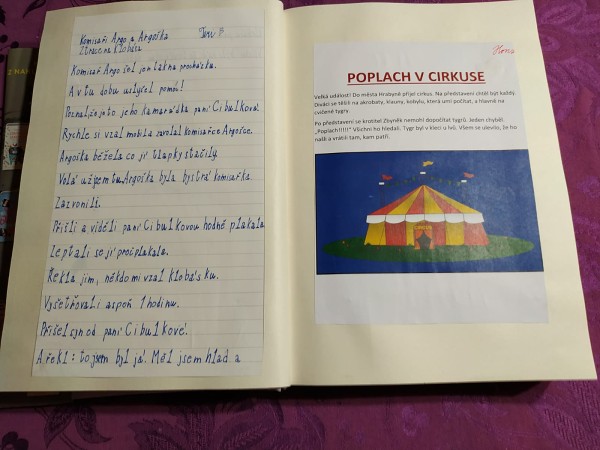 Komisaři Argo a Argoška
Ztracená klobása
Komisař Argo šel jen tak na procházku.
A v tu dobu uslyšel pomoc!
Poznal, že je to jeho kamarádka paní Cibulková.
Rychle si vzal mobil a zavolal komisařce Argošce.
Argoška běžela co jí tlapky stačily.
byla bystrá komisařka.
Zazvonili.
Přišli a viděli paní Cibulkovou hodně plakala.
Zeptali se jí proč plakala.
Řekla jim, někdo mi vzal klobásku.
Vyšetřovali aspoň 1 hodinu.
Přišel syn od paní Cibulkové.
A řekl: to jsem byl já! Měl jsem hlad a
POPLACH V CIRKUSE
Velká událost! Do města Hrabyně přijel cirkus. Na představení chtěl být každý.
Diváci se těšili na akrobaty, klauny, kobylu, která umí počítat, a hlavně na
cvičené tygry.
Po představení se krotitel Zbyněk nemohl dopočítat tygrů. Jeden chyběl.
„Poplach!!!!!" Všichni ho hledali. Tygr byl v kleci u lvů. Všem se ulevilo, že ho
našli a vrátili tam, kam patří.
CIRKUS
Z NAŠ